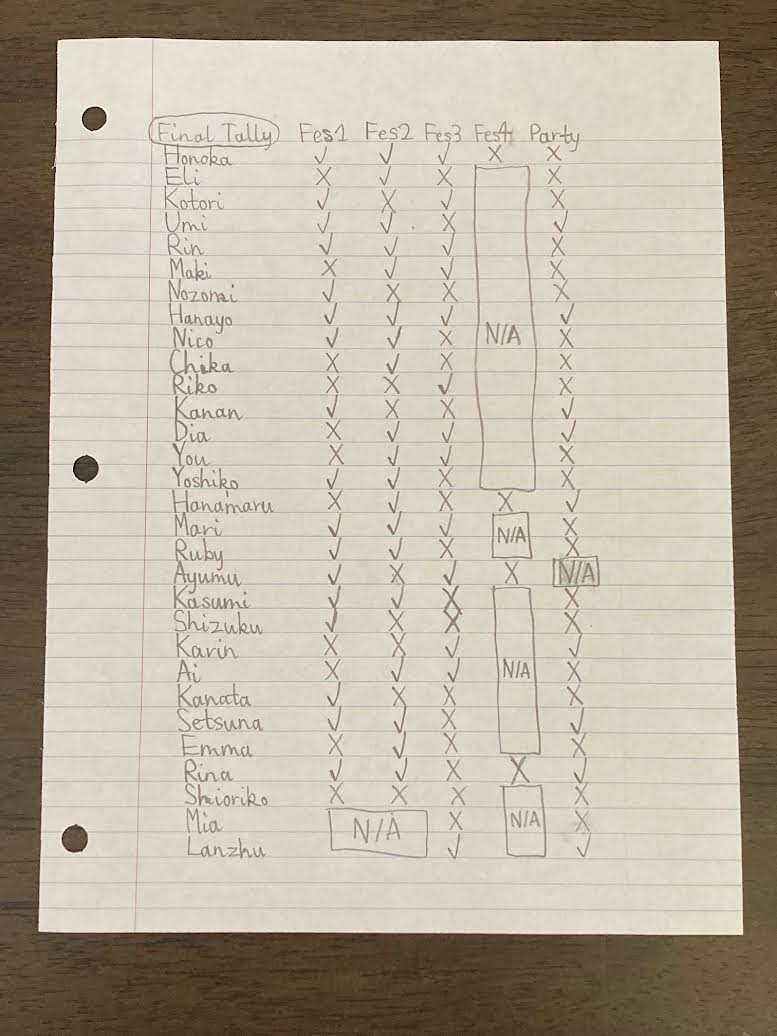 Final Tally Fes1 Fes2 Fes3 Fes4 Party
Honoka ✓ ✓ ✓ X X
Eli X ✓ X X
Kotori ✓ X ✓ X
Umi ✓ ✓ X ✓
Rin ✓ ✓ ✓ X
Maki X ✓ ✓ X
Nozomi ✓ X X X
Hanayo ✓ ✓ ✓ ✓
Nico ✓ ✓ X N/A X
Chika X ✓ X X
Riko X X ✓ X
Kanan ✓ X X ✓
Dia X ✓ ✓ ✓
You X ✓ ✓ X
Yoshiko ✓ ✓ X X
Hanamaru X ✓ X X ✓
Mari ✓ ✓ ✓ N/A X
Ruby ✓ ✓ X X
Ayumu ✓ X ✓ X N/A
Kasumi ✓ ✓ X X
Shizuku ✓ X X X
Karin X X ✓ ✓
Ai X ✓ ✓ N/A X
Kanata ✓ X X X
Setsuna ✓ ✓ X ✓
Emma X ✓ X X
Rina ✓ ✓ X X ✓
Shioriko X X X X
Mia N/A X N/A X
Lanzhu ✓ ✓